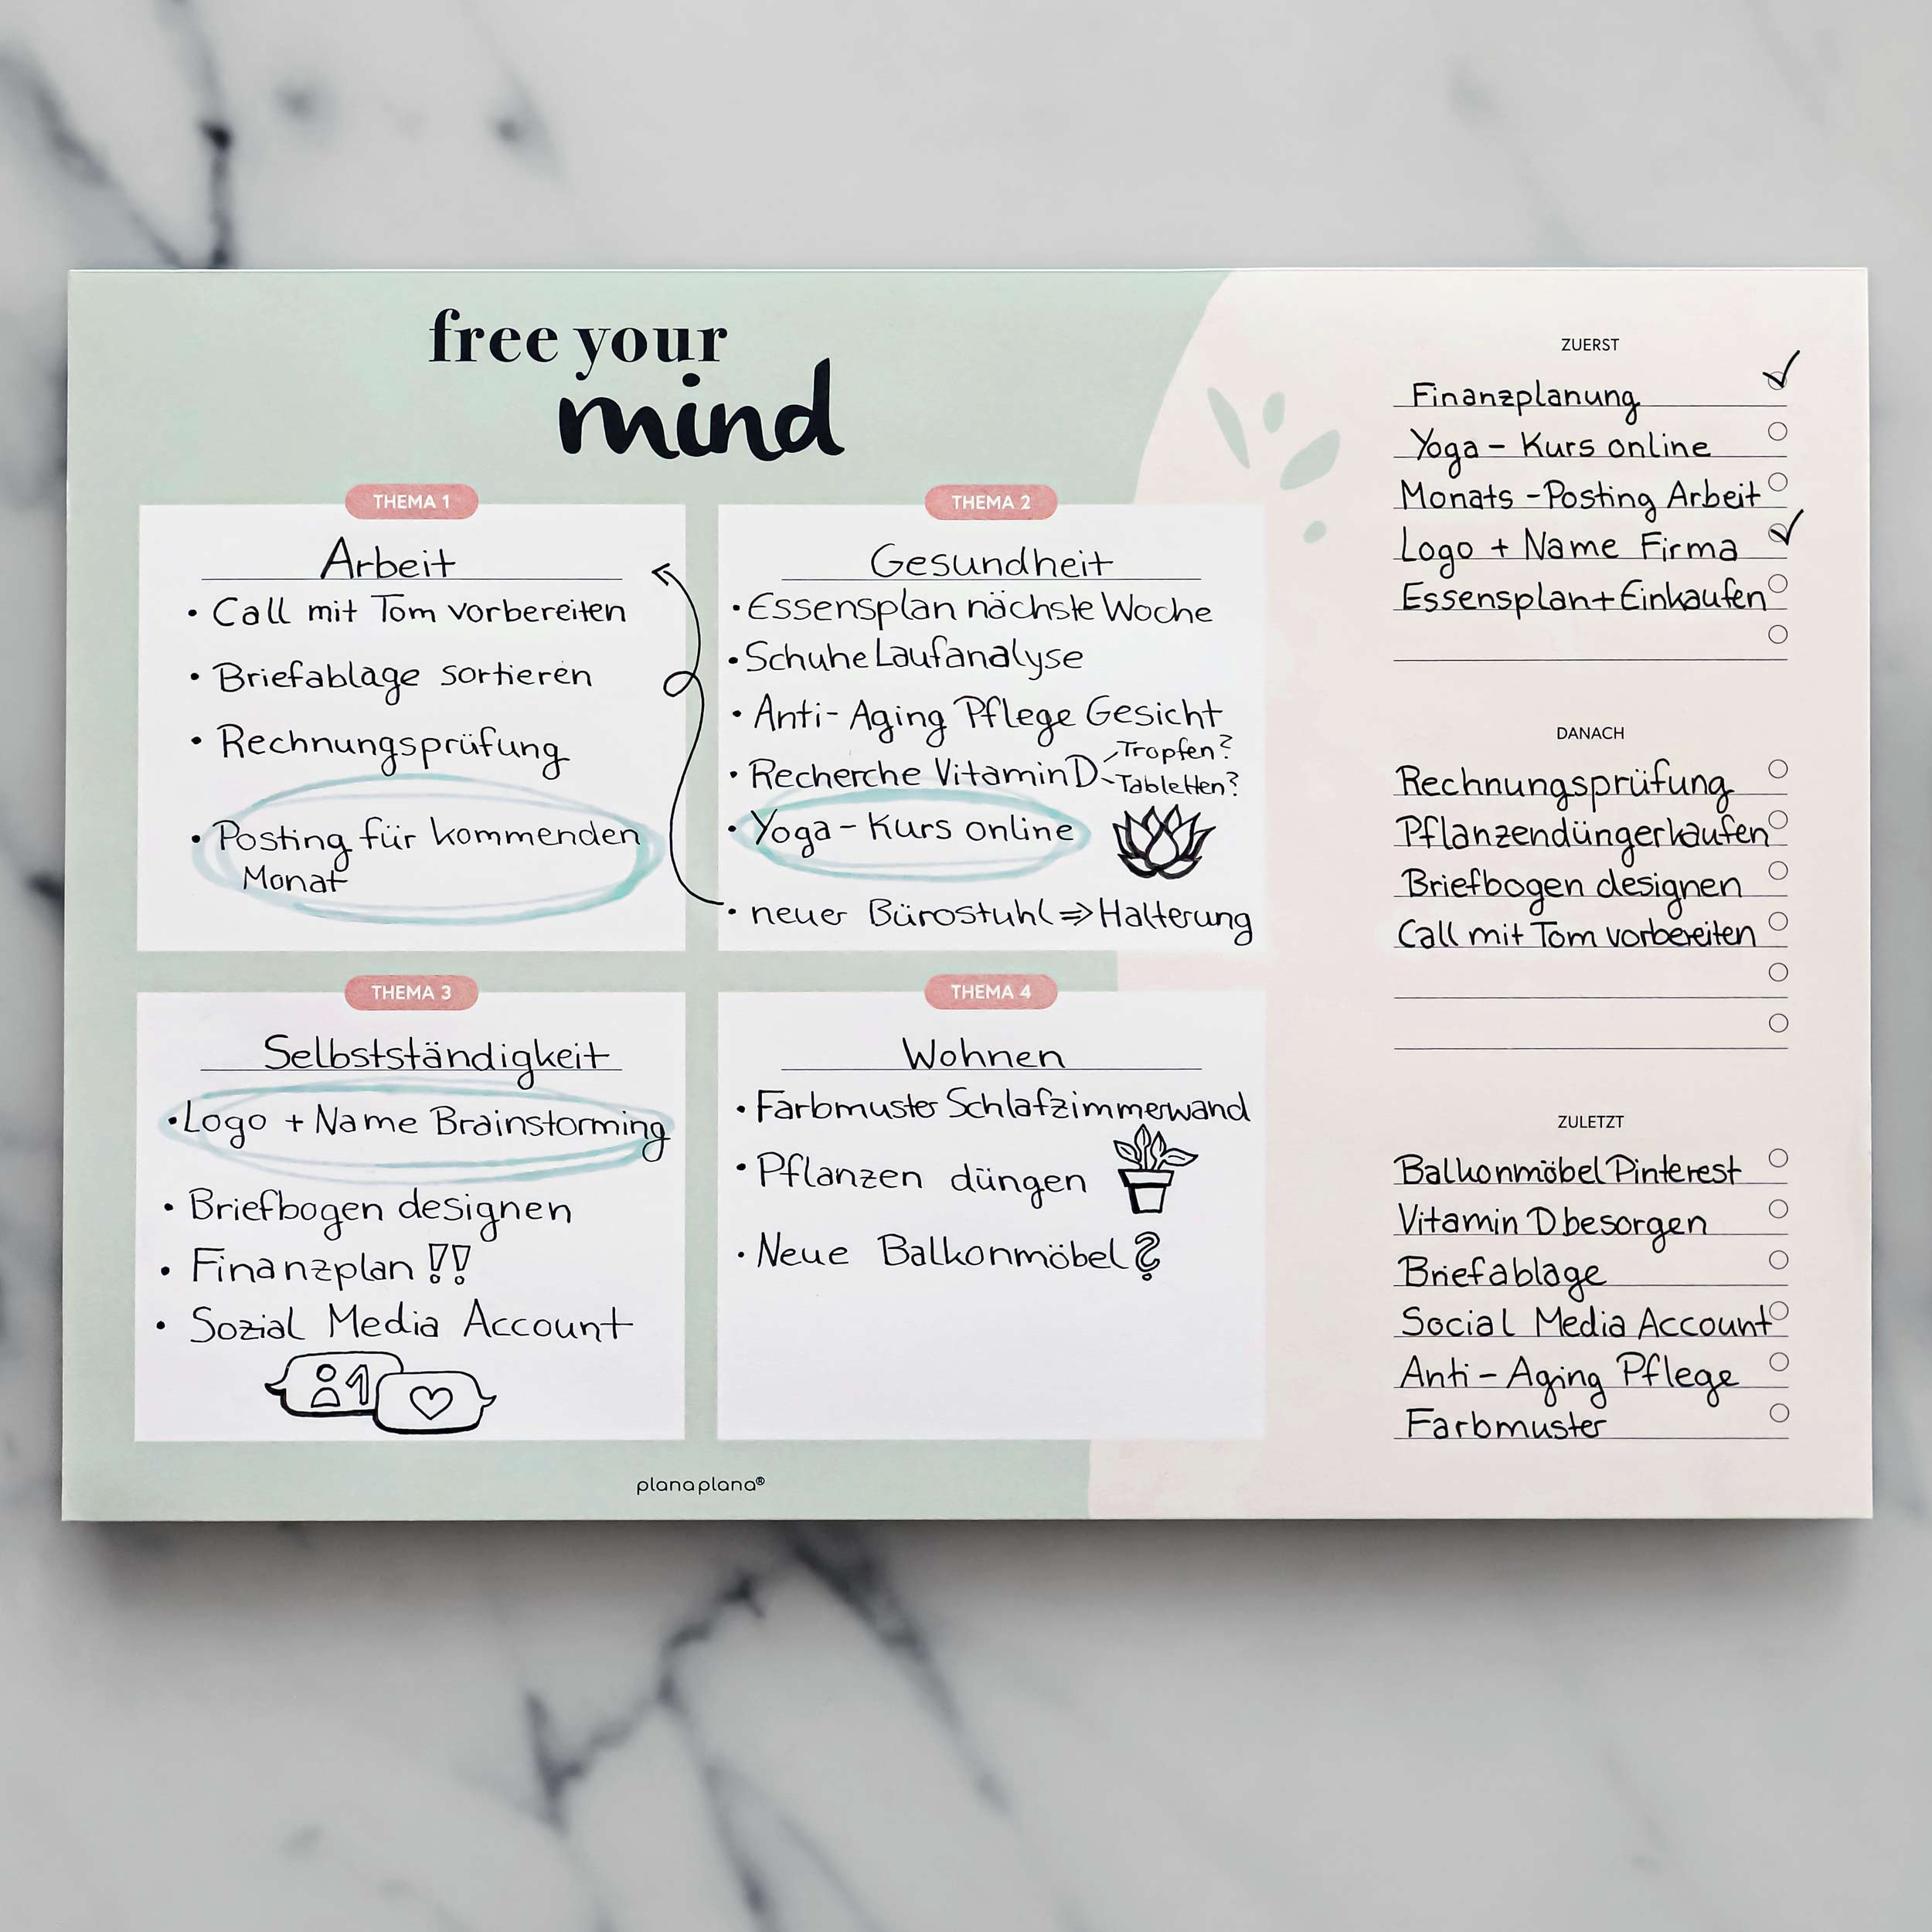 free your
mind
THEMA 1
Arbeit
• Call mit Tom vorbereiten
• Briefablage sortieren
• Rechnungsprüfung
• Posting für kommenden
Monat
THEMA 2
Gesundheit
• Essensplan nächste Woche
• Schuhe Laufanalyse
• Anti-Aging Pflege Gesicht
• Recherche Vitamin D
Tropfen?
Tabletten?
• Yoga-Kurs online
• neuer Bürostuhl ⇒ Halterung
THEMA 3
Selbstständigkeit
• Logo + Name Brainstorming
• Briefbogen designen
• Finanzplan !!
• Sozial Media Account
1
THEMA 4
Wohnen
• Farbmuster Schlafzimmerwand
• Pflanzen düngen
• Neue Balkonmöbel?
planaplana®
ZUERST
Finanzplanung ✓
Yoga - Kurs online
Monats - Posting Arbeit
Logo + Name Firma ✓
Essensplan + Einkaufen
DANACH
Rechnungsprüfung
Pflanzendünger kaufen
Briefbogen designen
Call mit Tom vorbereiten
ZULETZT
Balkonmöbel Pinterest
Vitamin D besorgen
Briefablage
Social Media Account
Anti-Aging Pflege
Farbmuster